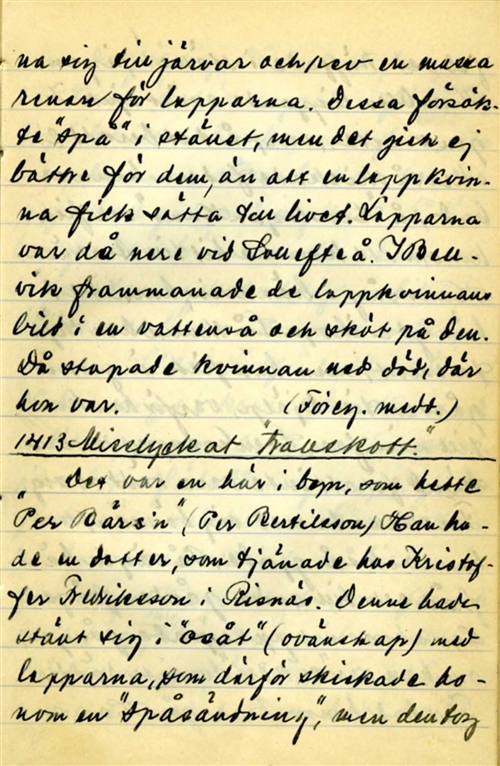 na sig till järvar och rev en massa
renar för lapparna. Dessa försök-
te "spå" i stället, men det gick ej
bättre för dem, än att en lappkvin-
na fick sätta till livet. Lapparna
var då nere vid Sollefteå. I Bell-
vik frammanade de lappkvinnans
bild i en vattenså och sköt på den.
Då stupade kvinnan ned död, där
hon var. (Föreg. medd.)
1413 Misslyckat "trollskott."
Det var en här i byn, som hette
"Per Bärs'n" (Per Bertilsson) Han ha-
de en dotter, som tjänade hos Kristof-
fer Fredriksson i Risnäs. Denne hade
ställt sig i "osåt" (ovänskap) med
lapparna, som därför skickade ho-
nom en "spåsändning", men den tog